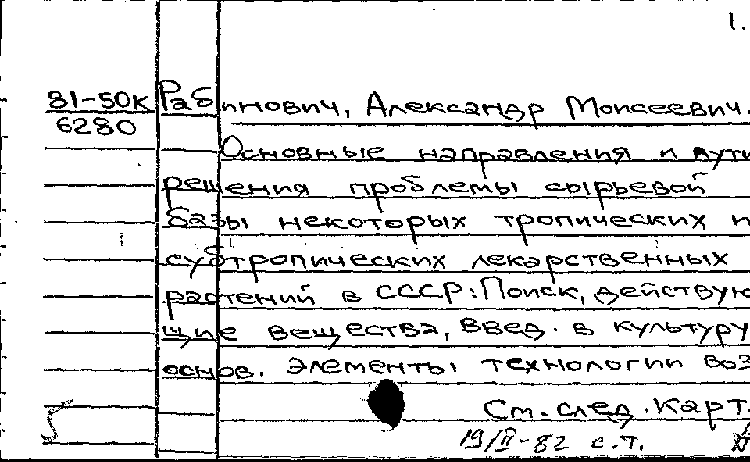 1.
81-50к Рабинович, Александр Моисеевич.
6280
Основные направления и пути
решения проблемы сырьевой
базы некоторых тропических и
субтропических лекарственных
растений в СССР: Поиск, действую
щие вещества, введ. в культуру
основ. элементы технологии воз
См. след. карт.
19/II-82 с.т.